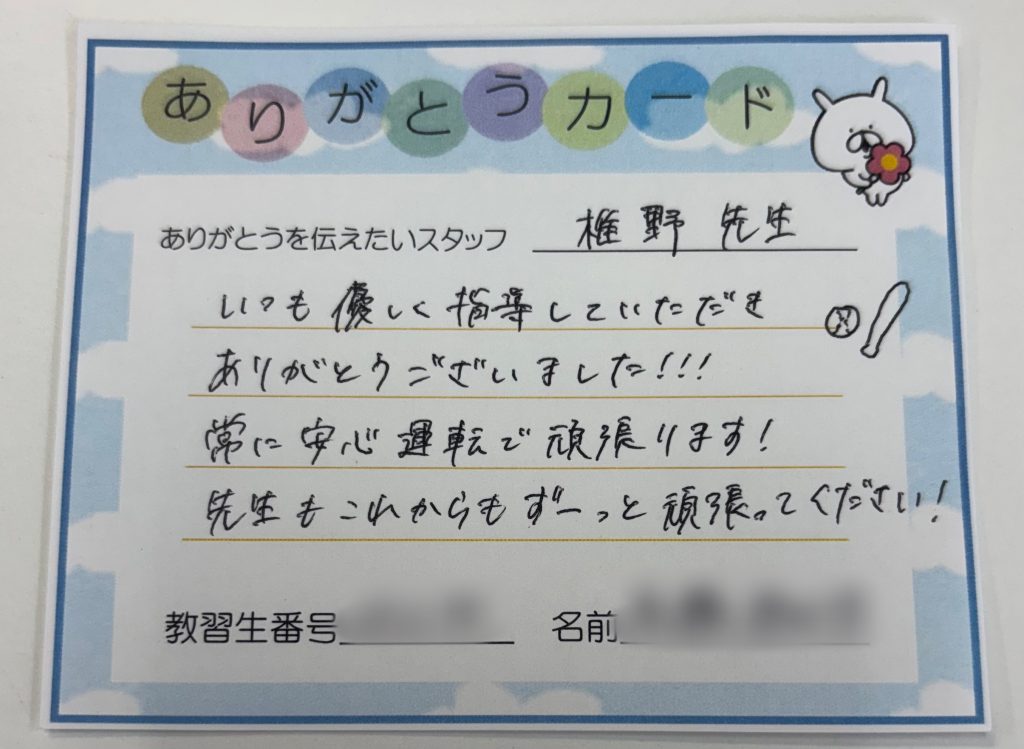 ありがとうカード
ありがとうを伝えたいスタッフ 椎野 先生
いつも優しく指導していただき
ありがとうございました!!!
常に安心運転で頑張ります!
先生もこれからもずーっと頑張ってください!
教習生番号
名前